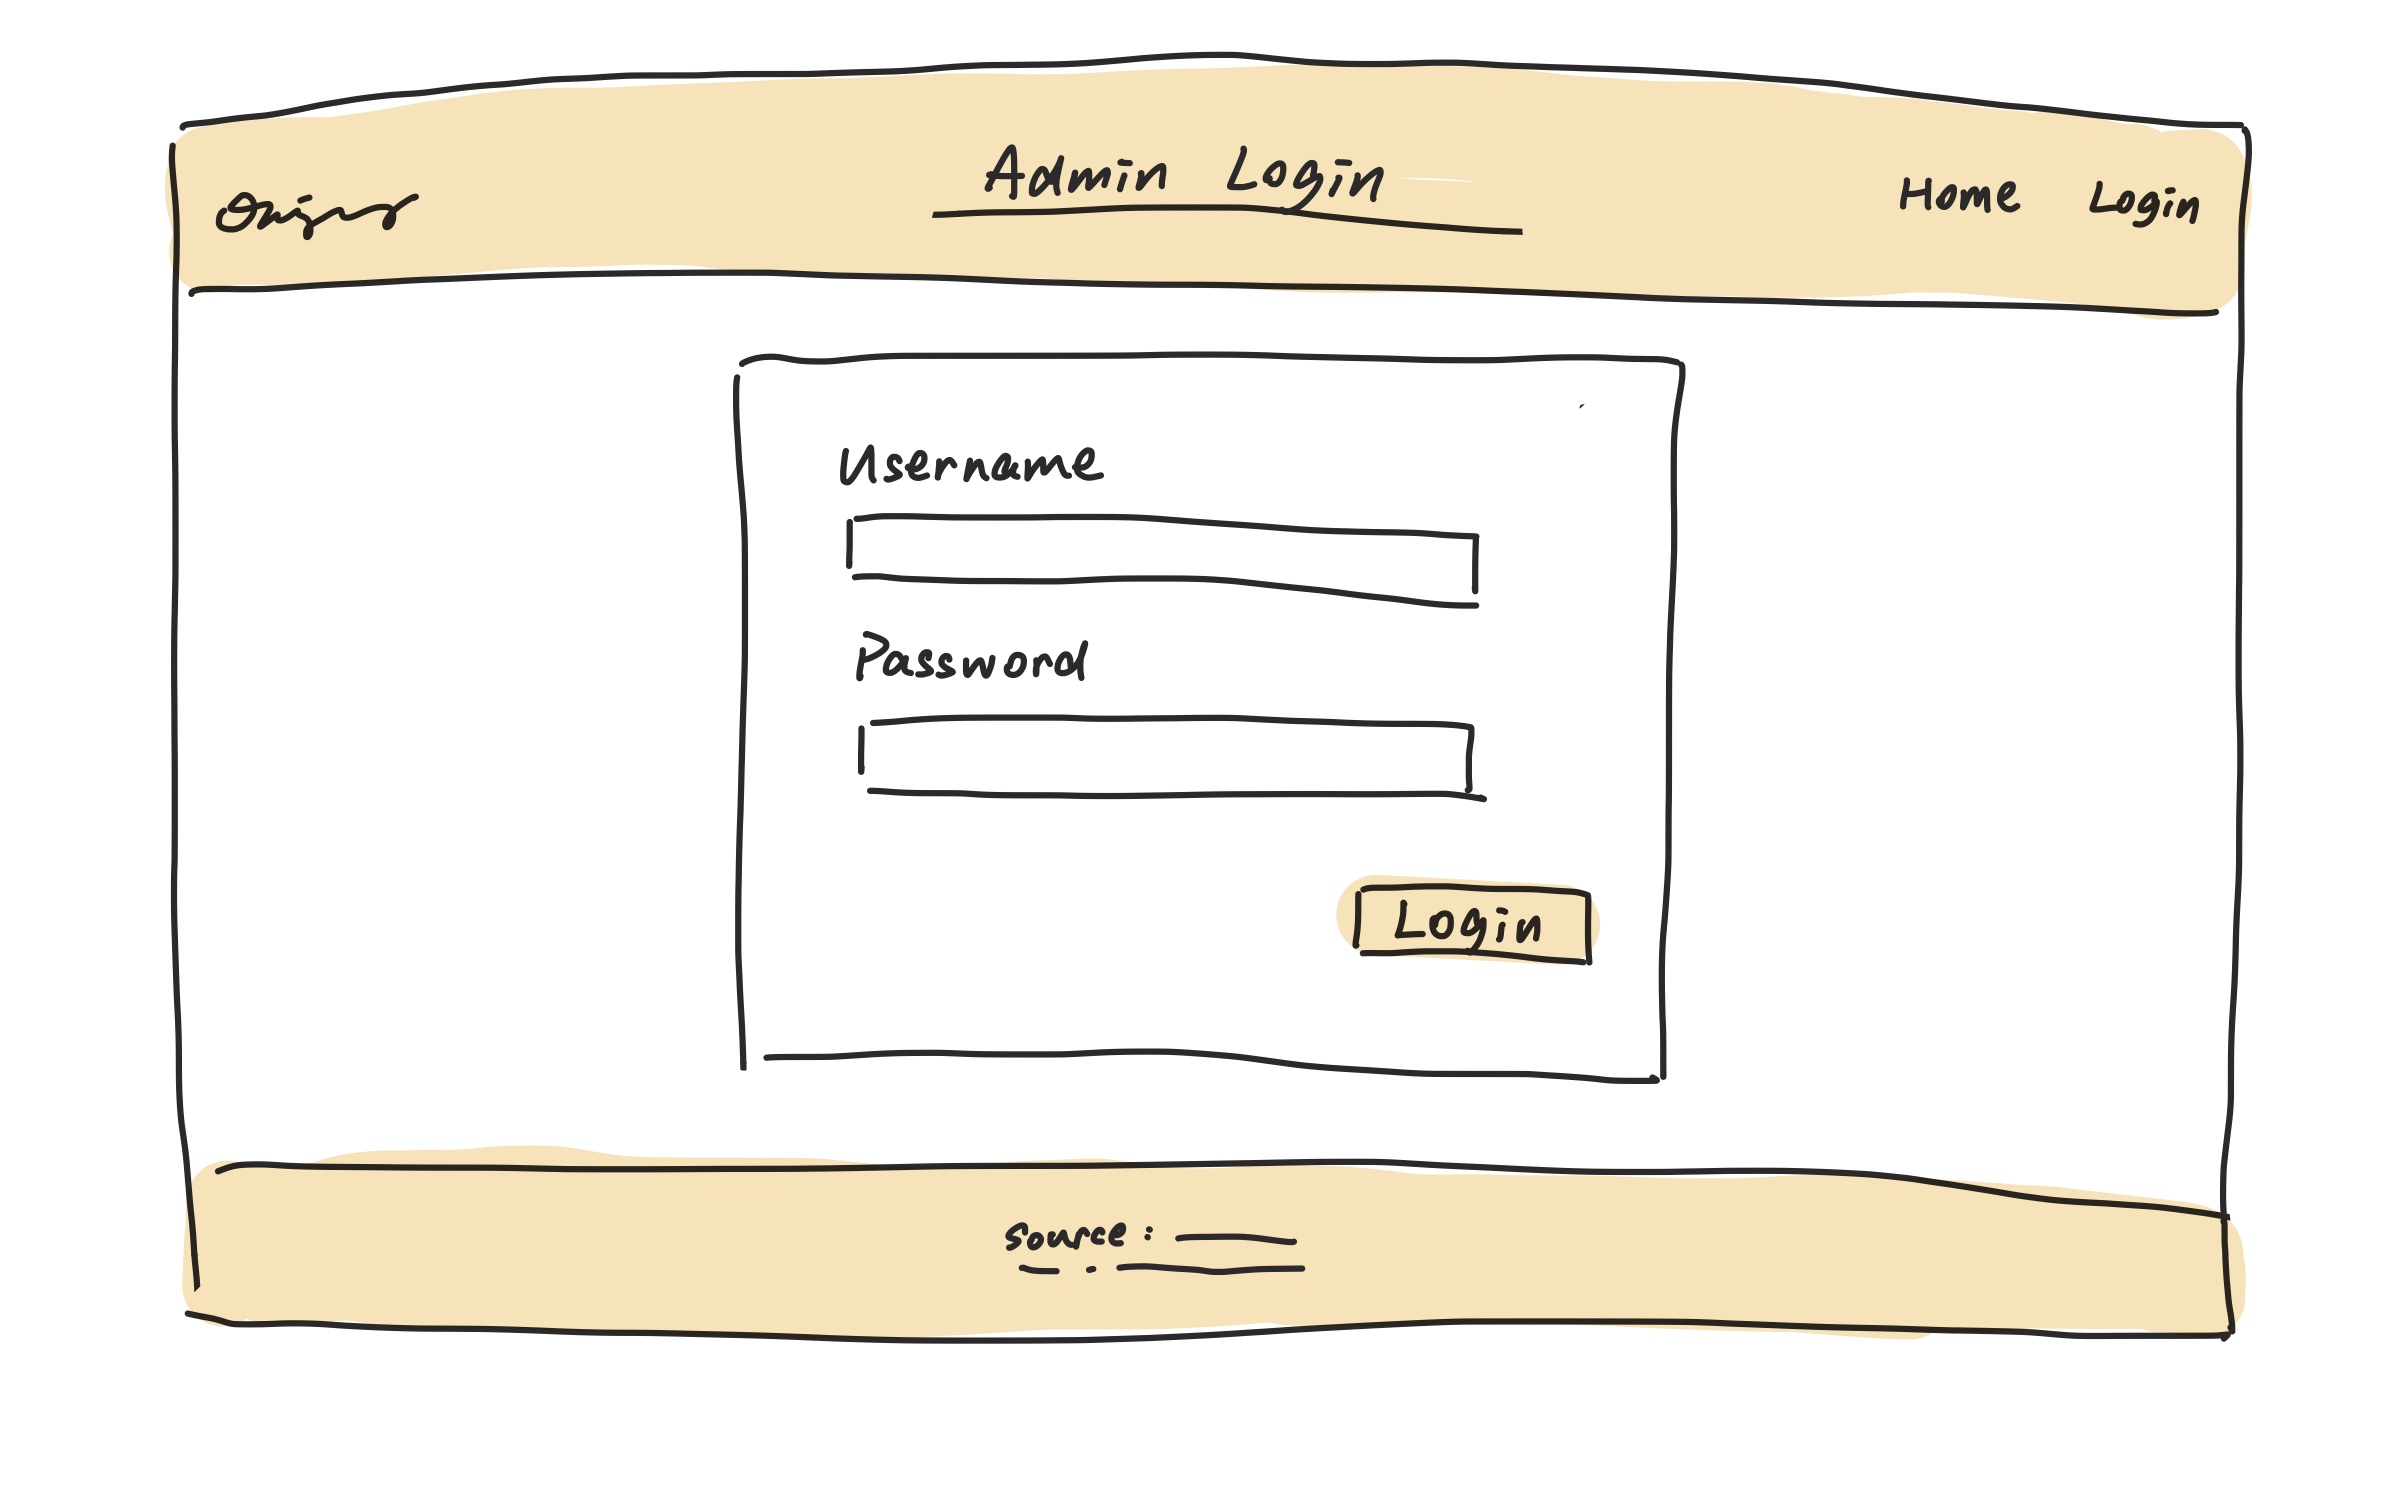 Admin Login
Home Login
Username
Password
Login
source :